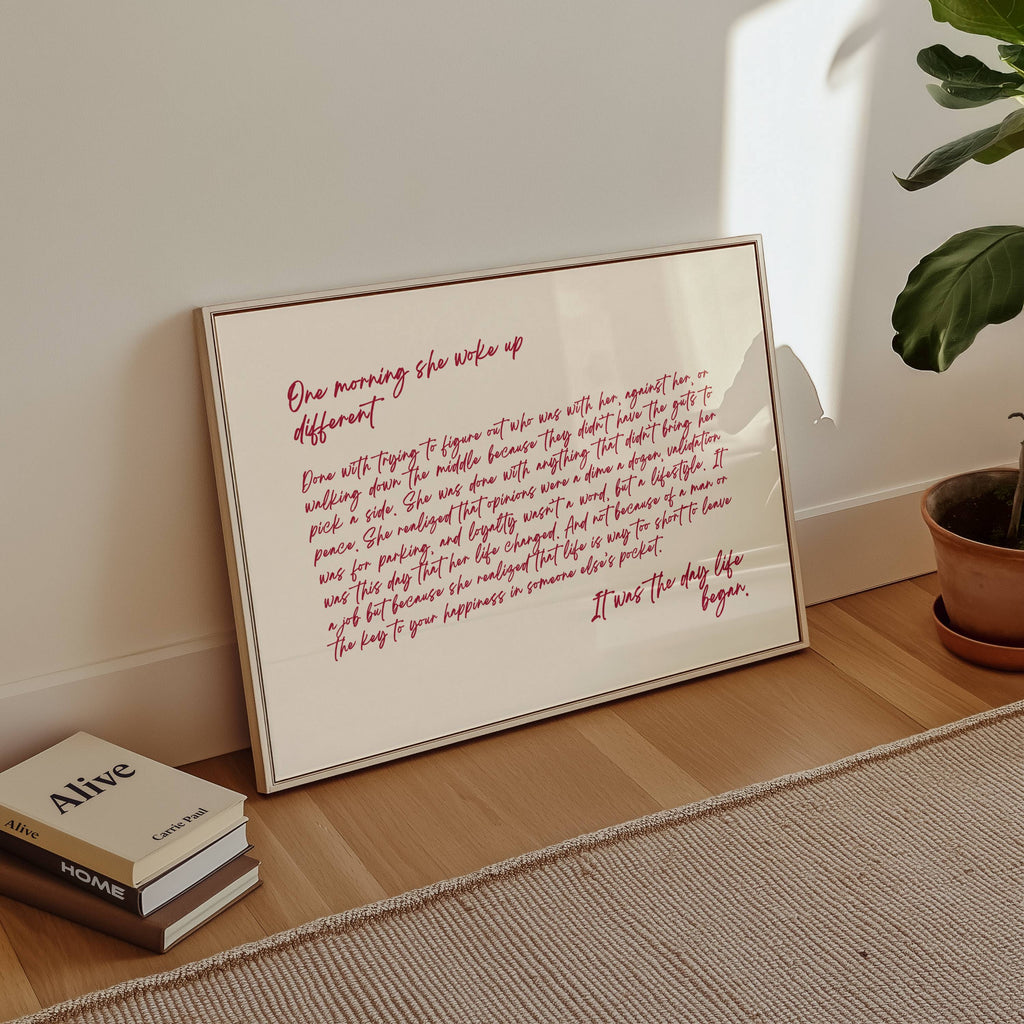 One morning she woke up
different
Done with trying to figure out who was with her, against her, or
walking down the middle because they didn't have the guts to
pick a side. She was done with anything that didn't bring her
peace. She realized that opinions were a dime a dozen, validation
was for parking, and loyalty wasn't a word, but a lifestyle. It
was this day that her life changed. And not because of a man or
a job but because she realized that life is way too short to leave
the key to your happiness in someone else's pocket.
It was the day life
began.
Alive
Carrie Paul
Alive
HOME